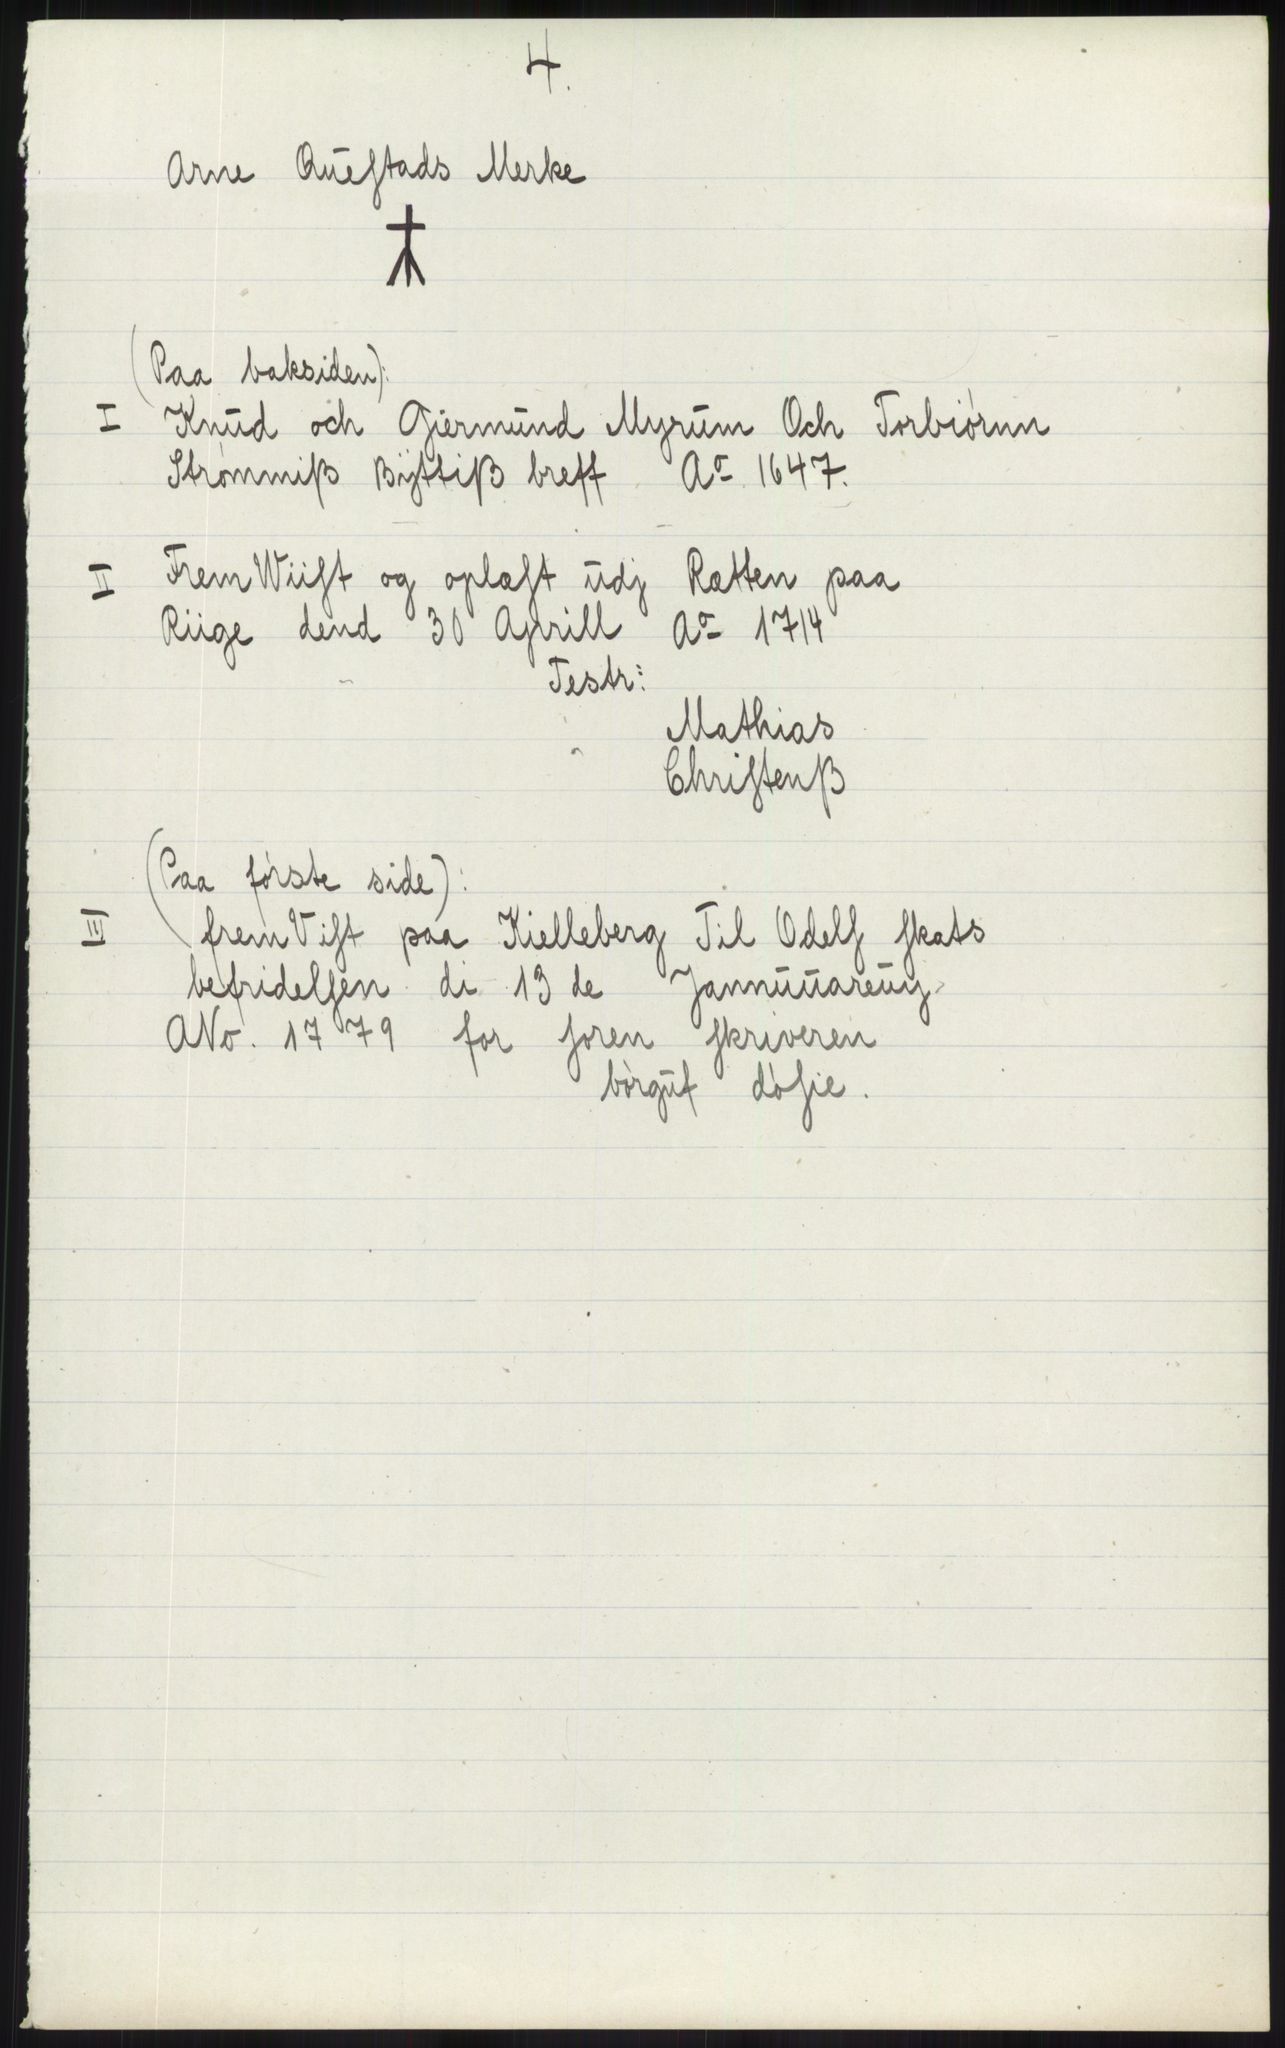 4.
Arne Queſtads Merke
(Paa baksiden):
I Knud och Giermund Myrum Och Torbiørnn
Strømmiß Byttiß breff Ao 1647.
II FremWiiſt og oplæſt udj Rætten paa
Riige dend 30 Aprill Ao 1714
Testr:
Mathias
Chriſtenß
(Paa første side):
III fremViſt paa Kielleberg Til Odelſ ſkats
befridelſen di 13 de Jannuuareuy
ANo. 1779 for ſoren ſkriveren
børguf døſie.